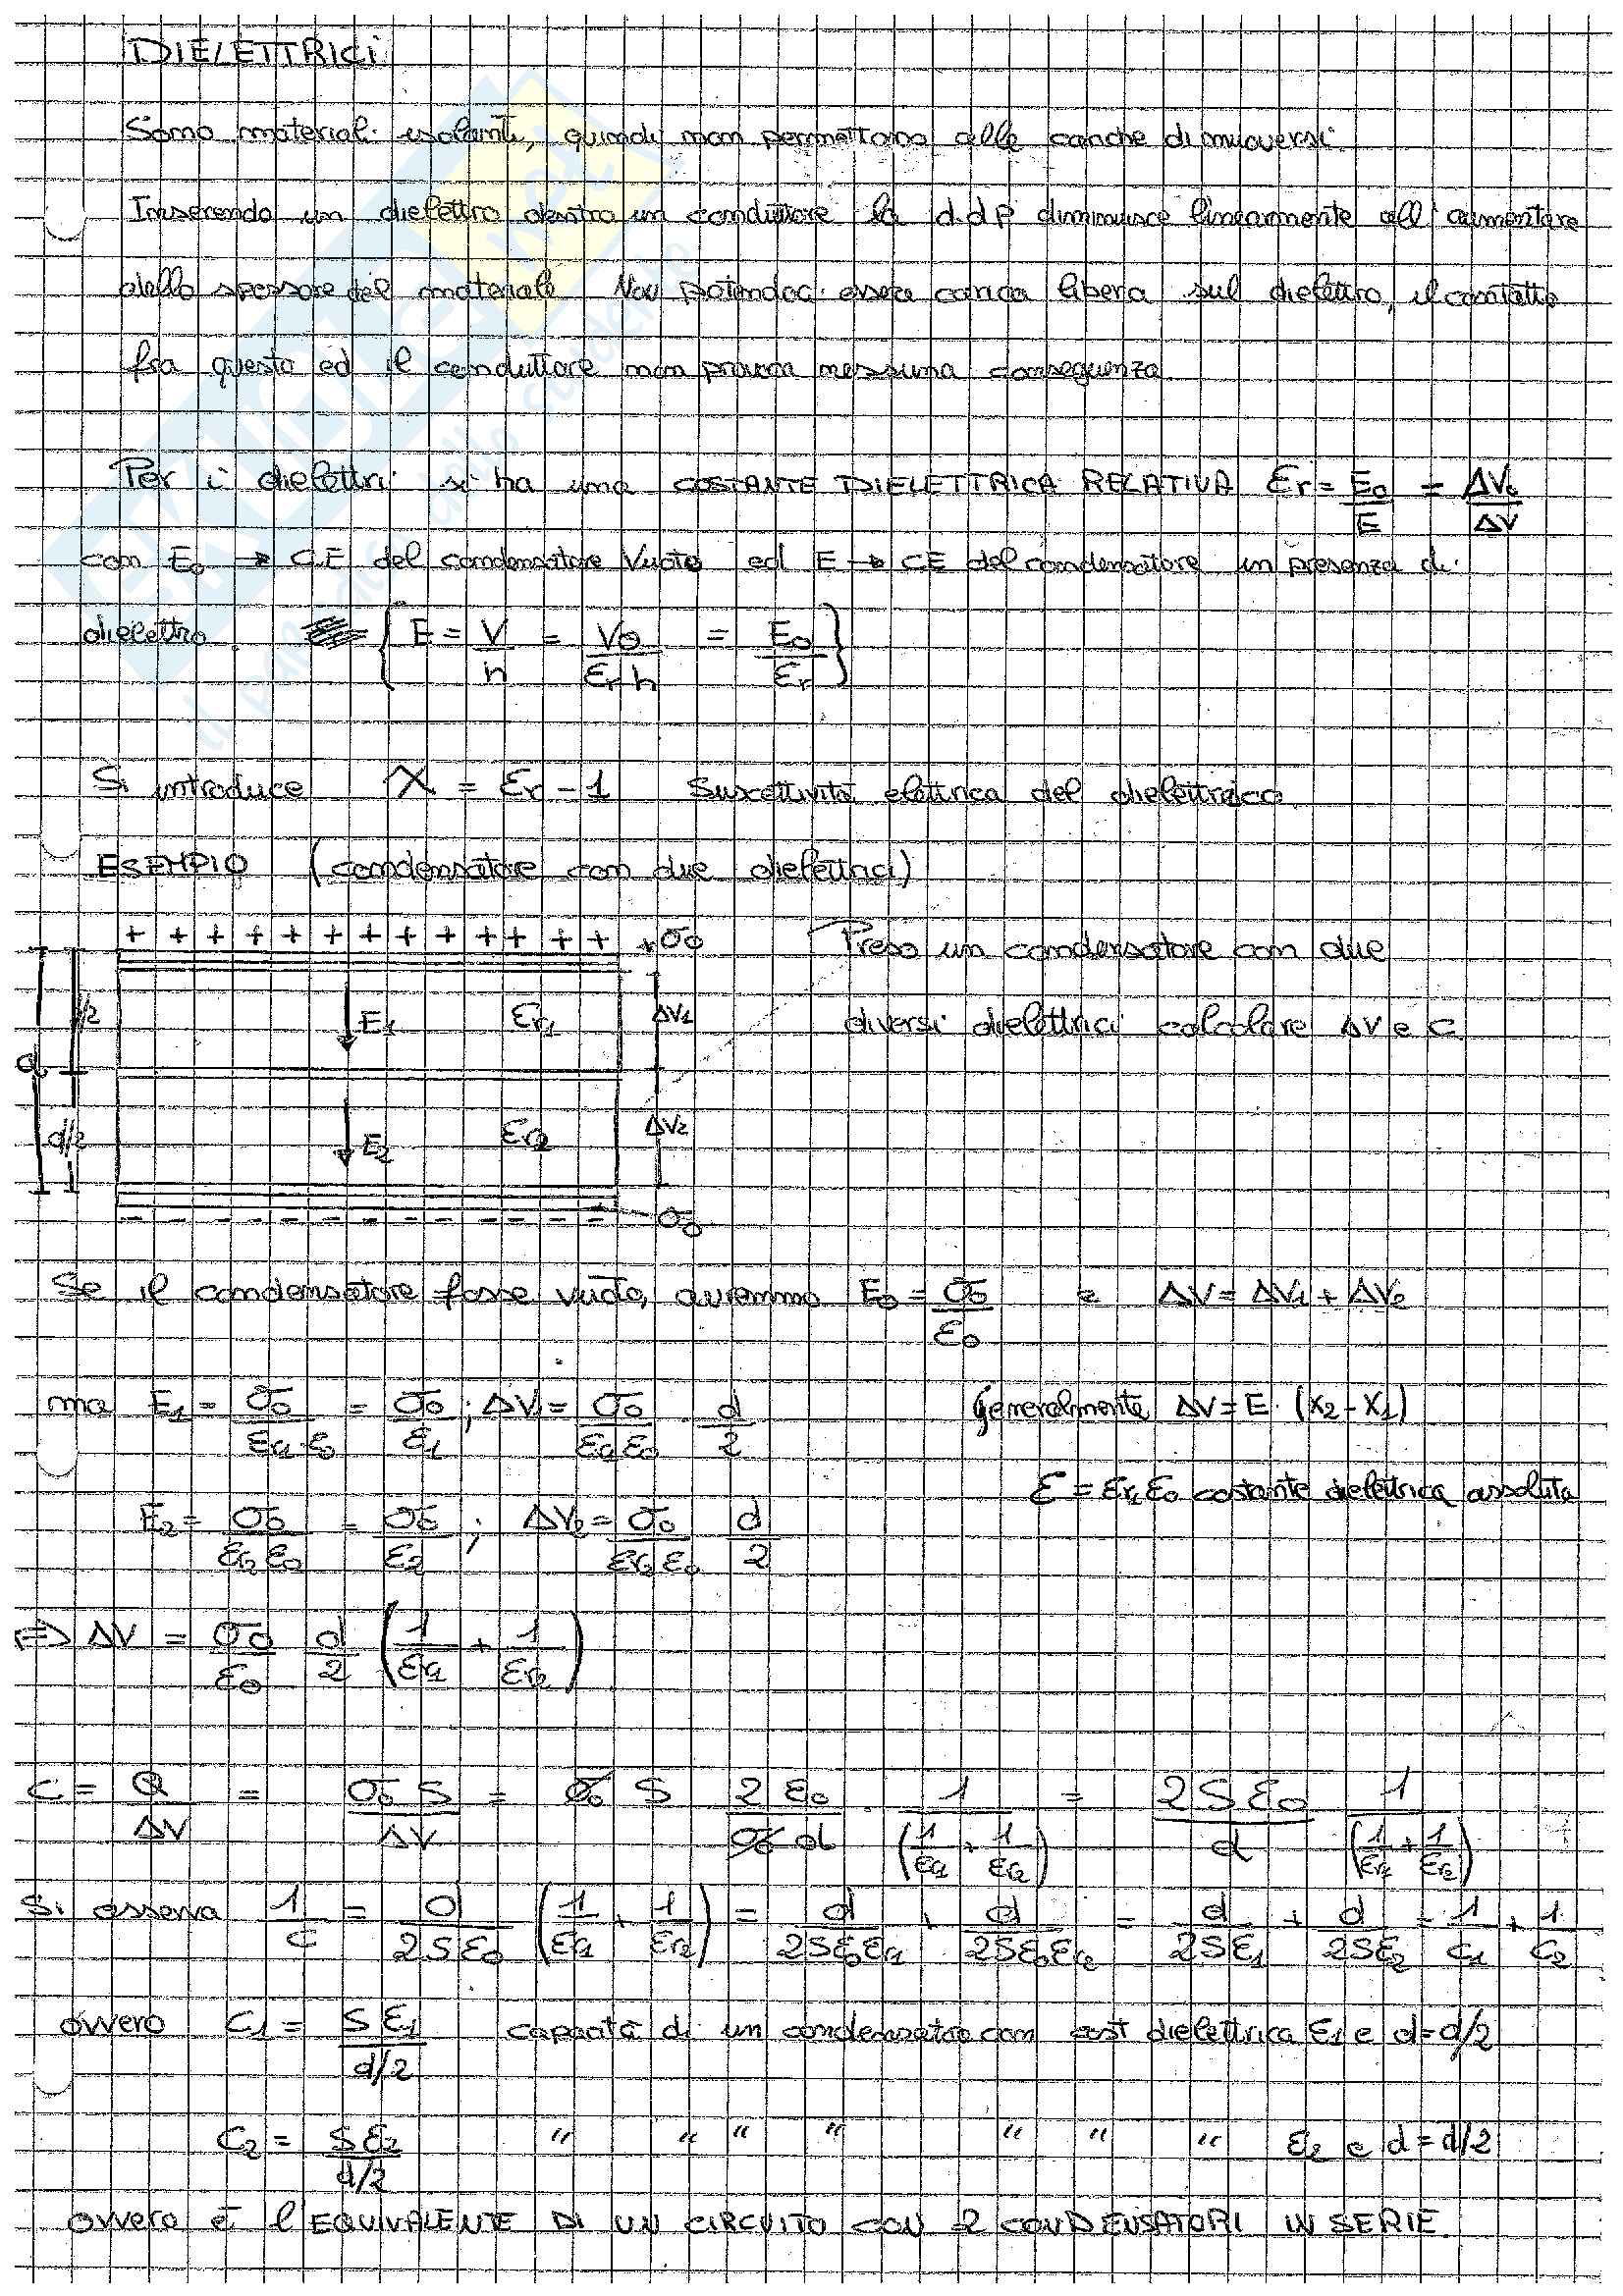 DIELETTRICI
Sono materiali isolanti, quindi non permettono alle cariche di muoversi.
Inserendo un dielettro dentro un conduttore la d.d.p diminuisce linearmente all'aumentare
dello spessore del materiale. Non potendoci essere carica libera sul dielettro, il contatto
fra questo ed il conduttore non provoca nessuna conseguenza.
Per i dielettri si ha una COSTANTE DIELETTRICA RELATIVA εr = E0/E = ΔV0/ΔV
con E0 → CE del condensatore vuoto ed E → CE del condensatore in presenza di
dielettro. { E = V/h = V0/(εr h) = E0/εr }
Si introduce χ = εr - 1 Suscettività elettrica del dielettrico.
ESEMPIO (condensatore con due dielettrici)
+ + + + + + + + + + + + + +σ0
Preso un condensatore con due
d/2 E1 εr1 ΔV1
diversi dielettrici calcolare ΔV e C
d
d/2 E2 εr2 ΔV2
- - - - - - - - - - - - - -σ0
Se il condensatore fosse vuoto, avremmo E0 = σ0/ε0 e ΔV = ΔV1 + ΔV2
ma E1 = σ0/(εr1·ε0) = σ0/ε1 ; ΔV1 = σ0/(εr1 ε0) d/2 Generalmente ΔV = E·(x2 - x1)
ε = εr ε0 costante dielettrica assoluta
E2 = σ0/(εr2 ε0) = σ0/ε2 ; ΔV2 = σ0/(εr2 ε0) d/2
=> ΔV = σ0/ε0 d/2 (1/εr1 + 1/εr2)
C = Q/ΔV = σ0 S/ΔV = σ0 S 2ε0/(σ0 d) · 1/(1/εr1 + 1/εr2) = 2Sε0/d 1/(1/εr1 + 1/εr2)
Si osserva 1/C = d/(2Sε0) (1/εr1 + 1/εr2) = d/(2Sε0εr1) + d/(2Sε0εr2) = d/(2Sε1) + d/(2Sε2) = 1/C1 + 1/C2
ovvero C1 = Sε1/(d/2) capacità di un condensatore con cost dielettrica ε1 e d=d/2
C2 = Sε2/(d/2) " " " " " " " ε2 e d=d/2
ovvero è l'EQUIVALENTE DI UN CIRCUITO CON 2 CONDENSATORI IN SERIE.